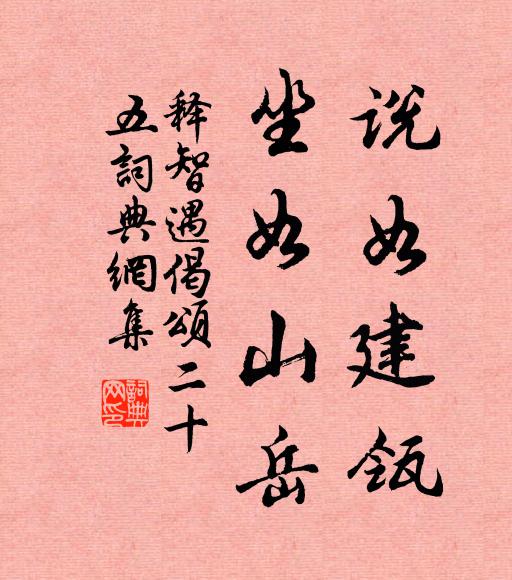 说如建瓴
坐如山岳
释智遇偈頌二十
五詞典網集
詞典網印